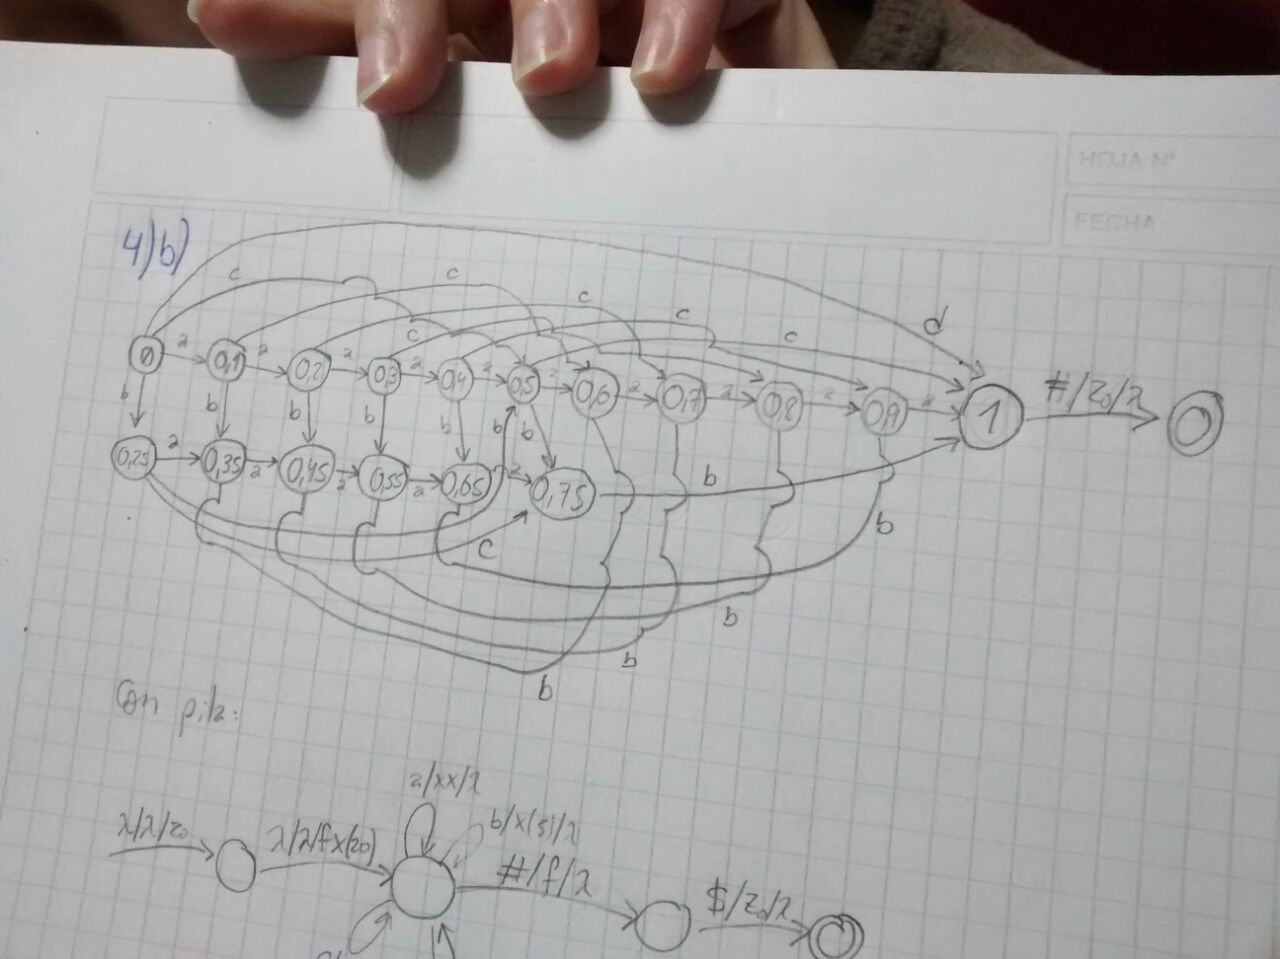 HOJA N°
FECHA
4)b)
d
c c c c c c
0 a 0,1 a 0,2 a 0,3 a 0,4 a 0,5 a 0,6 a 0,7 a 0,8 a 0,9 a 1 #/Z0/λ
b b b b b b b
0,25 a 0,35 a 0,45 a 0,55 a 0,65 a 0,75 b
c
b
b
b
b
Con pila:
a/xx/λ
λ/λ/z0 λ/λ/fx(20) b/x(5)/λ
#/f/λ $/Z0/λ